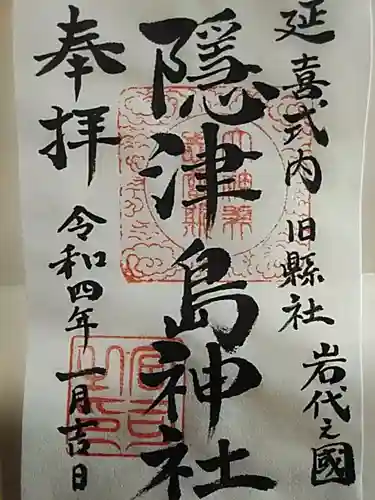 延喜式内 旧縣社 岩代之國
隠津島神社
奉拝 令和四年 一月吉日